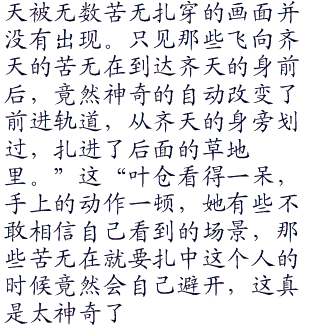 天被无数苦无扎穿的画面并
没有出现。只见那些飞向齐
天的苦无在到达齐天的身前
后，竟然神奇的自动改变了
前进轨道，从齐天的身旁划
过，扎进了后面的草地
里。”这“叶仓看得一呆，
手上的动作一顿，她有些不
敢相信自己看到的场景，那
些苦无在就要扎中这个人的
时候竟然会自己避开，这真
是太神奇了